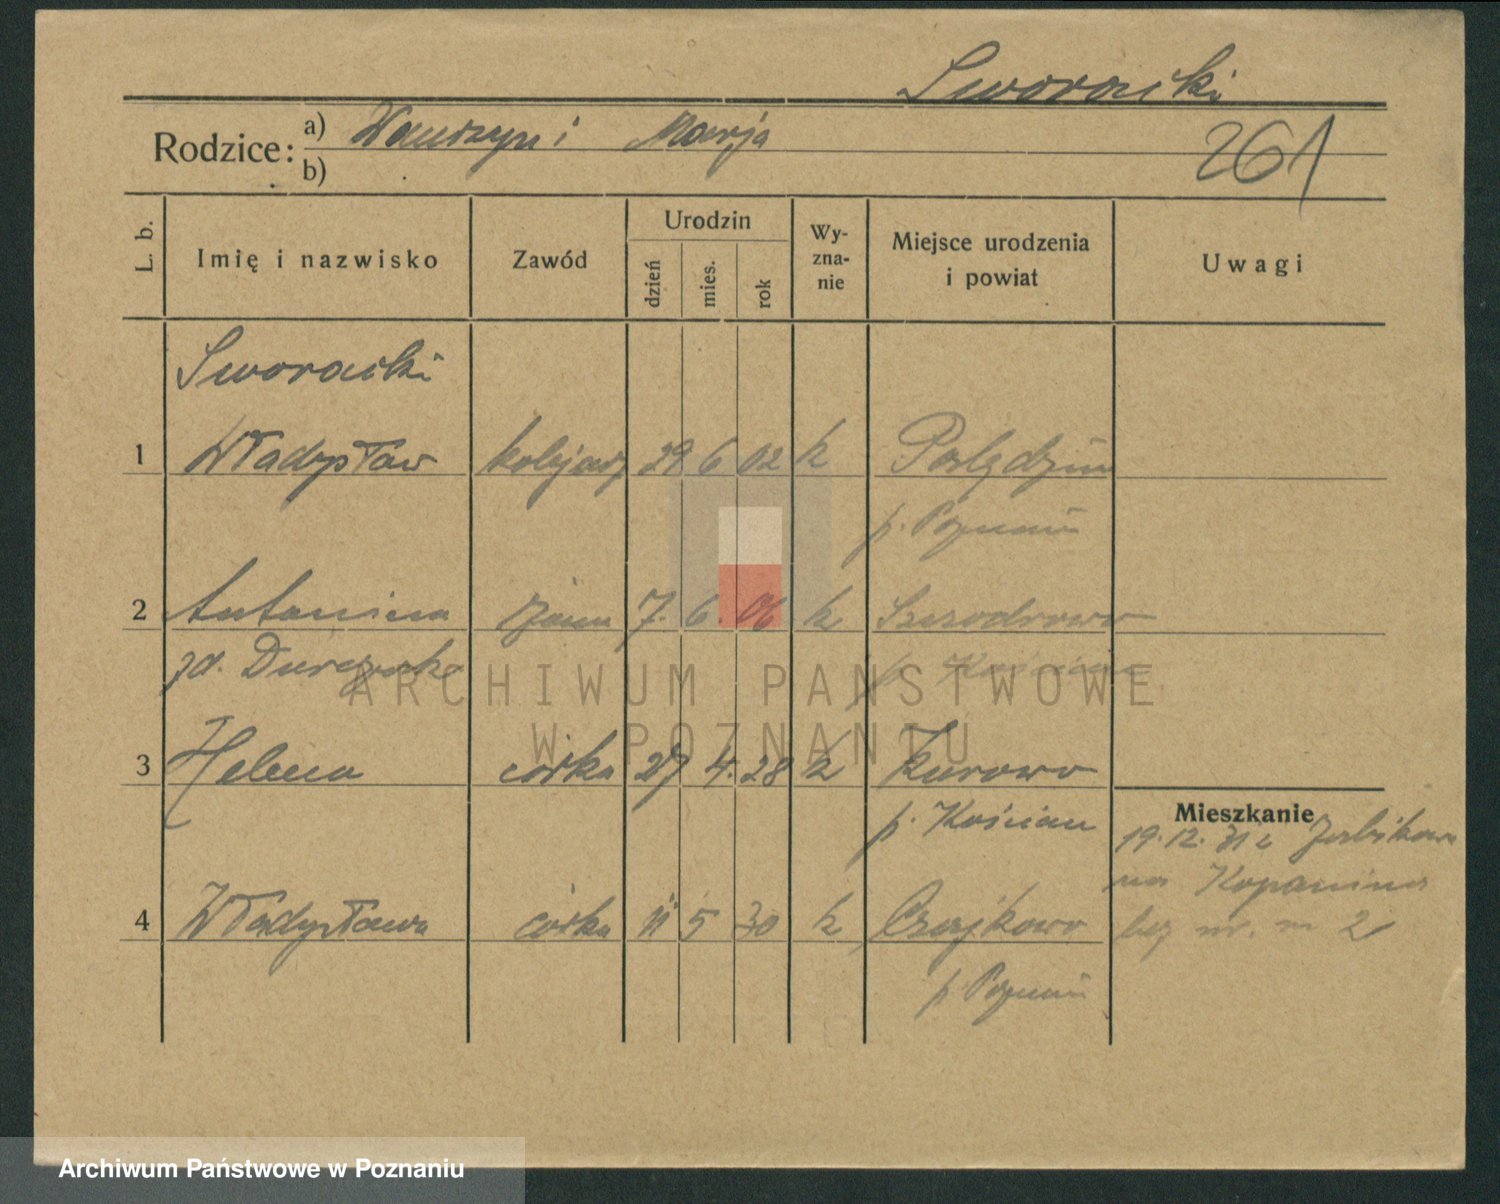 Sworacki
Rodzice: a) Wawrzyn i Marja
b)
261
L. b. Imię i nazwisko Zawód Urodzin dzień mies. rok Wy-zna-nie Miejsce urodzenia i powiat Uwagi
Sworacki
1 Władysław kolejarz 29 6 02 k
p. Poznań
2 Antonina żona 7. 6. 06 k
zd. Durczynska p. Kościan
3 Helena córka 27 4. 28 k Kurowo
p. Kościan
Mieszkanie
19.12.31 z Żabikowa
na Kopanina
4 Władysława córka 11 5 30 k Czajkowo
bez nr. m 2
p Poznań
ARCHIWUM PAŃSTWOWE
W POZNANIU
Archiwum Państwowe w Poznaniu